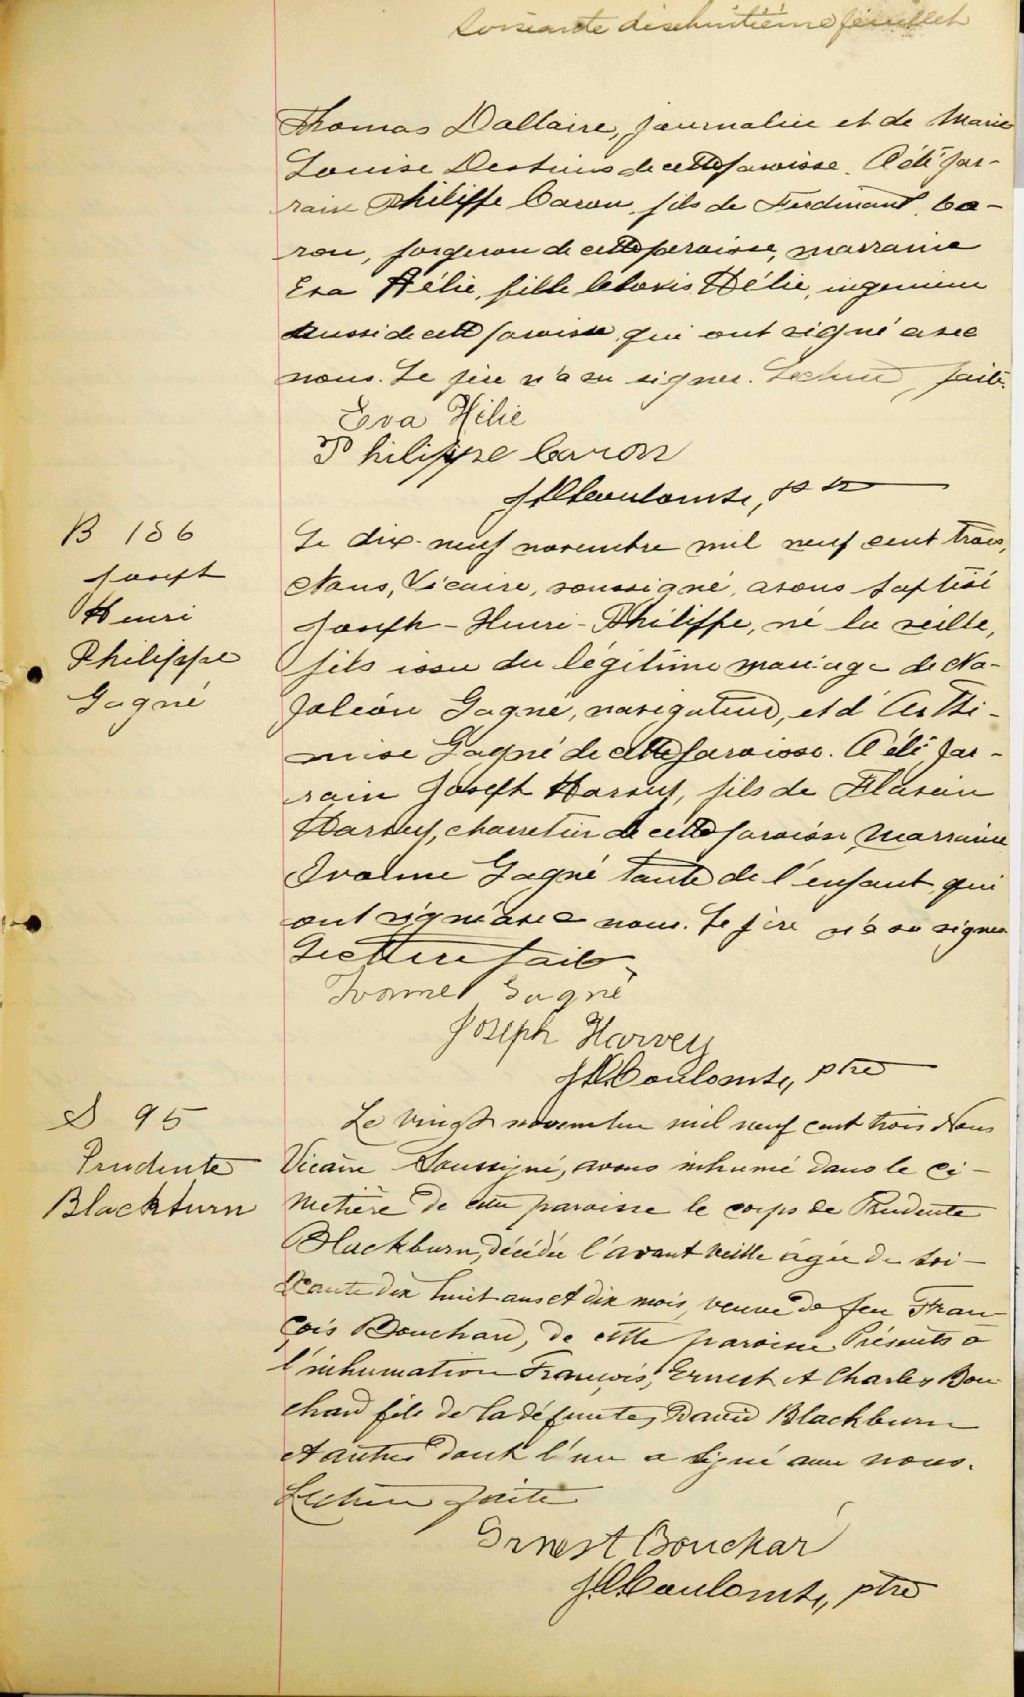 Soixante dixhuitième feuillet
Thomas Dallaire, journalier et de Marie
Louise Desbiens de cette paroisse. A été par-
rain Philippe Caron, fils de Ferdinand Ca-
ron, forgeron de cette paroisse, marraine
Eva Hélie, fille de Louis Hélie, ingenieur
aussi de cette paroisse qui ont signé avec
nous. Le père n'a su signer. Lecture faite.
Eva Hélie
Philippe Caron
Coulombe, ptre
B 186
Joseph
Henri
Philippe
Gagné
Le dix-neuf novembre mil neuf cent trois,
Nous, Vicaire, soussigné, avons baptisé
Joseph-Henri-Philippe, né la veille,
fils issu du légitime mariage de Na-
poléon Gagné, navigateur, et d'Arthé-
mise Gagné de cette paroisse. A été par-
rain Joseph Harvey, fils de Flavien
Harvey, charretier de cette paroisse, marraine
Ivonne Gagné tante de l'enfant, qui
ont signé avec nous. Le père n'a su signer
Lecture faite
Ivonne Gagné
Joseph Harvey
Coulombe, ptre
S 95
Prudente
Blackburn
Le vingt novembre mil neuf cent trois Nous
Vicaire Soussigné, avons inhumé dans le ci-
metière de cette paroisse le corps de Prudente
Blackburn, décédée l'avant veille agée de soi-
xante dix huit ans et dix mois, veuve de feu Fran-
çois Bouchard, de cette paroisse. Présents à
l'inhumation François, Ernest et Charles Bou-
chard fils de la défunte, David Blackburn
et autres dont l'un a signé avec nous.
Lecture faite
Ernest Bouchar
Coulombe, ptre